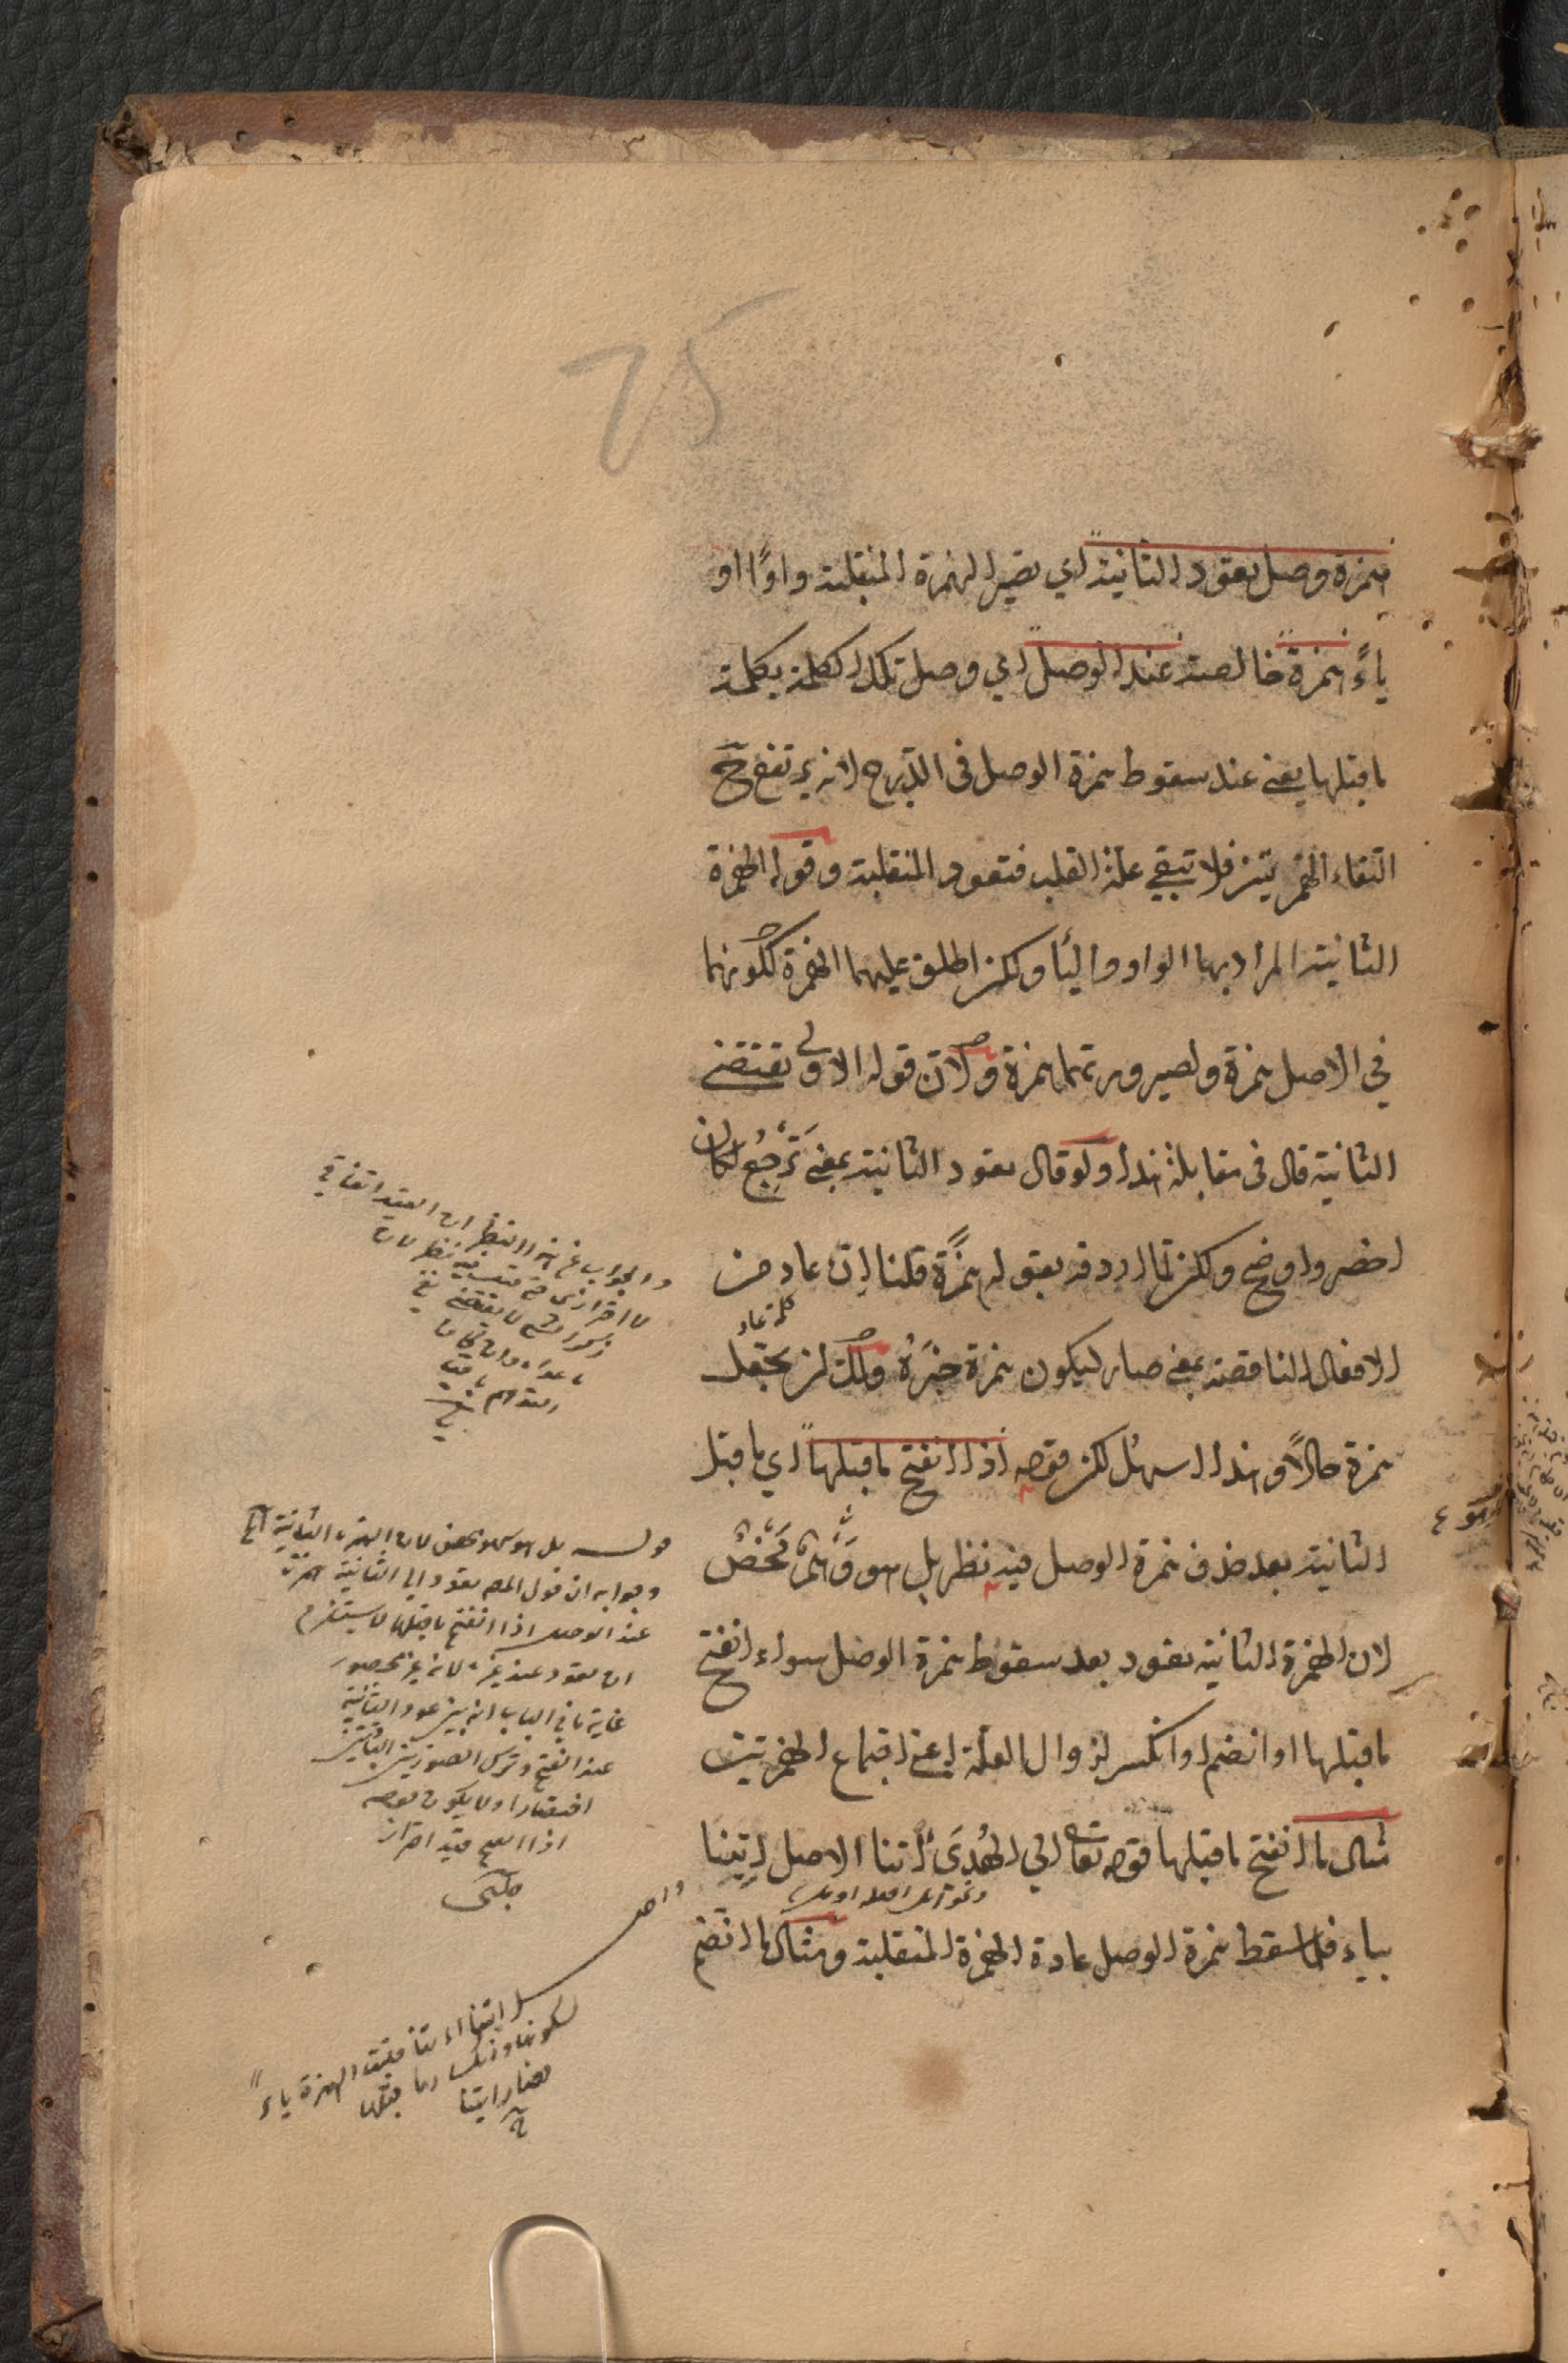 25
همزة وصل تعود الثانية اي تصير الهمزة المنقلبة واوًا او
ياءً همزة خالصة عند الوصل اي وصل تلك الكلمة بكلمة
ما قبلها يعني عند سقوط همزة الوصل في الدرج لانه يرتفع ح
التقاء الهمزتين فلا تبقي علة القلب فتعود المنقلبة وقوله الهمزة
الثانية المراد بها الواو والياء ولكن اطلق عليهما الهمزة لكونهما
في الاصل همزة ولصيرورتهما همزة ولان قوله الاولى تقتضي
الثانية قال في مقابلة هذا ولو قال تعود الثانية بمعني ترجع لكان
اخصر واوضح ولكن لما اردفه بقوله همزةً قلنا ان عاد من
كلمة عاد
الافعال الناقصة بمعني صار ليكون همزة خبره ولك ان تجعل
همزة حالاً وهذا اسهل لكن قوله اذا انفتح ما قبلها اي ما قبل
الثانية بعد حذف همزة الوصل فيه نظر بل هو وهم محض
لان الهمزة الثانية تعود بعد سقوط همزة الوصل سواء انفتح
ما قبلها او انضم او انكسر لزوال العلة اعني اجتماع الهمزتين
مثال ما انفتح ما قبلها قوله تعالى الى الهدى ائتنا الاصل ايتنا
بياء فلما سقط همزة الوصل عادة الهمزة المنقلبة ومثال ما انضم
والجواب عن هذا النظر ان القيد اتفاقي
لا احترازي
قوله بل هو وهم محض لان الهمزة الثانية الخ
وجوابه ان قول المص تعود اي الثانية همزة
عند الوصل اذا انفتح ما قبلها لا يستلزم
ان تعود عند غيره لانه غير محصور
غاية ما في الباب انه بين عود الثانية
عند الفتح وترك الصورتين الباقيتين
اختصارا ولا يكون قوله
اذا انفتح قيد احتراز
واصل
ايتنا ائتنا فقلبت الهمزة ياءً
لسكونها وانكسار ما قبلها
فصار ايتنا